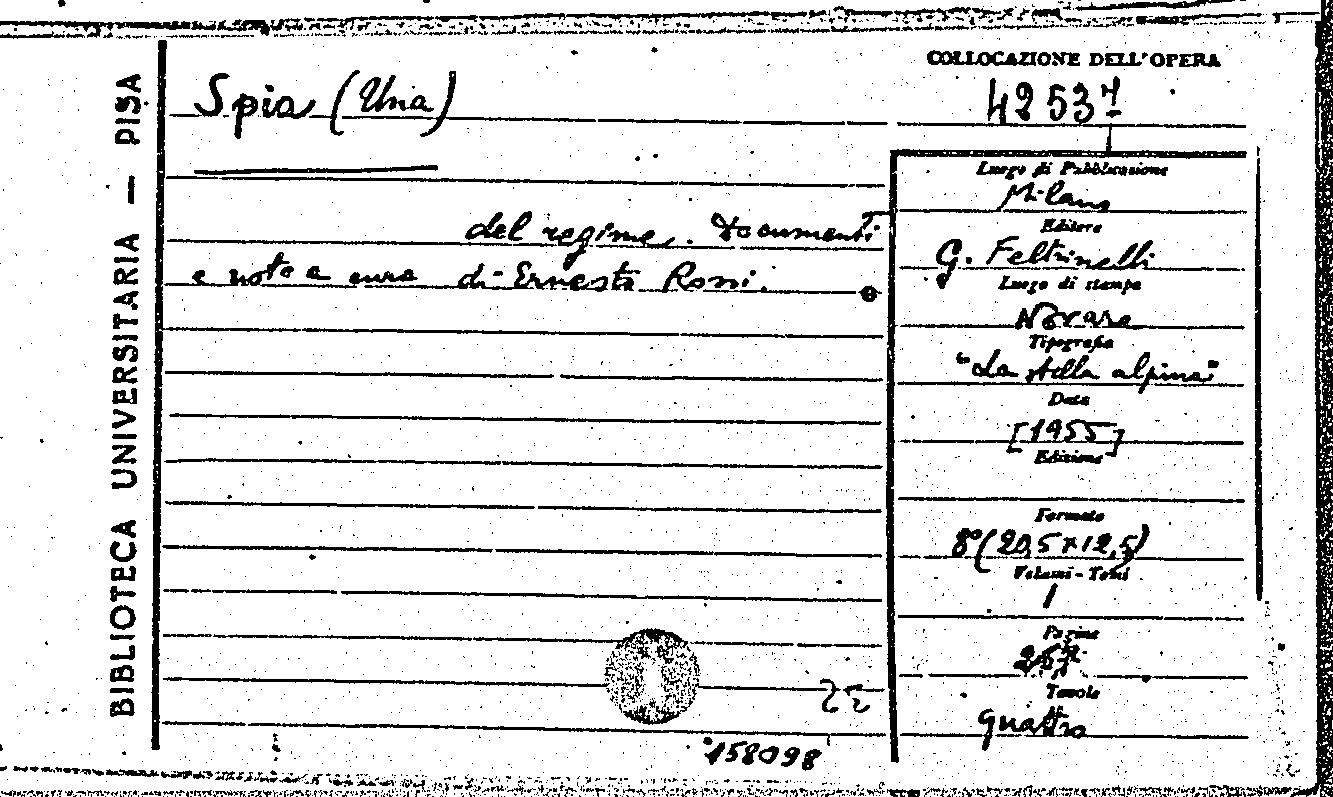 BIBLIOTECA UNIVERSITARIA — PISA
Spia (Una)
del regime. Documenti
e note a cura di Ernesto Rossi.
158098
COLLOCAZIONE DELL'OPERA
42537
Luogo di Pubblicazione
Milano
Editore
G. Feltrinelli
Luogo di stampa
Novara
Tipografia
"La stella alpina"
Data
[1955]
Edizione
Formato
8°(20,5x12,5)
Volumi - Tomi
1
Pagine
Tavole
quattro